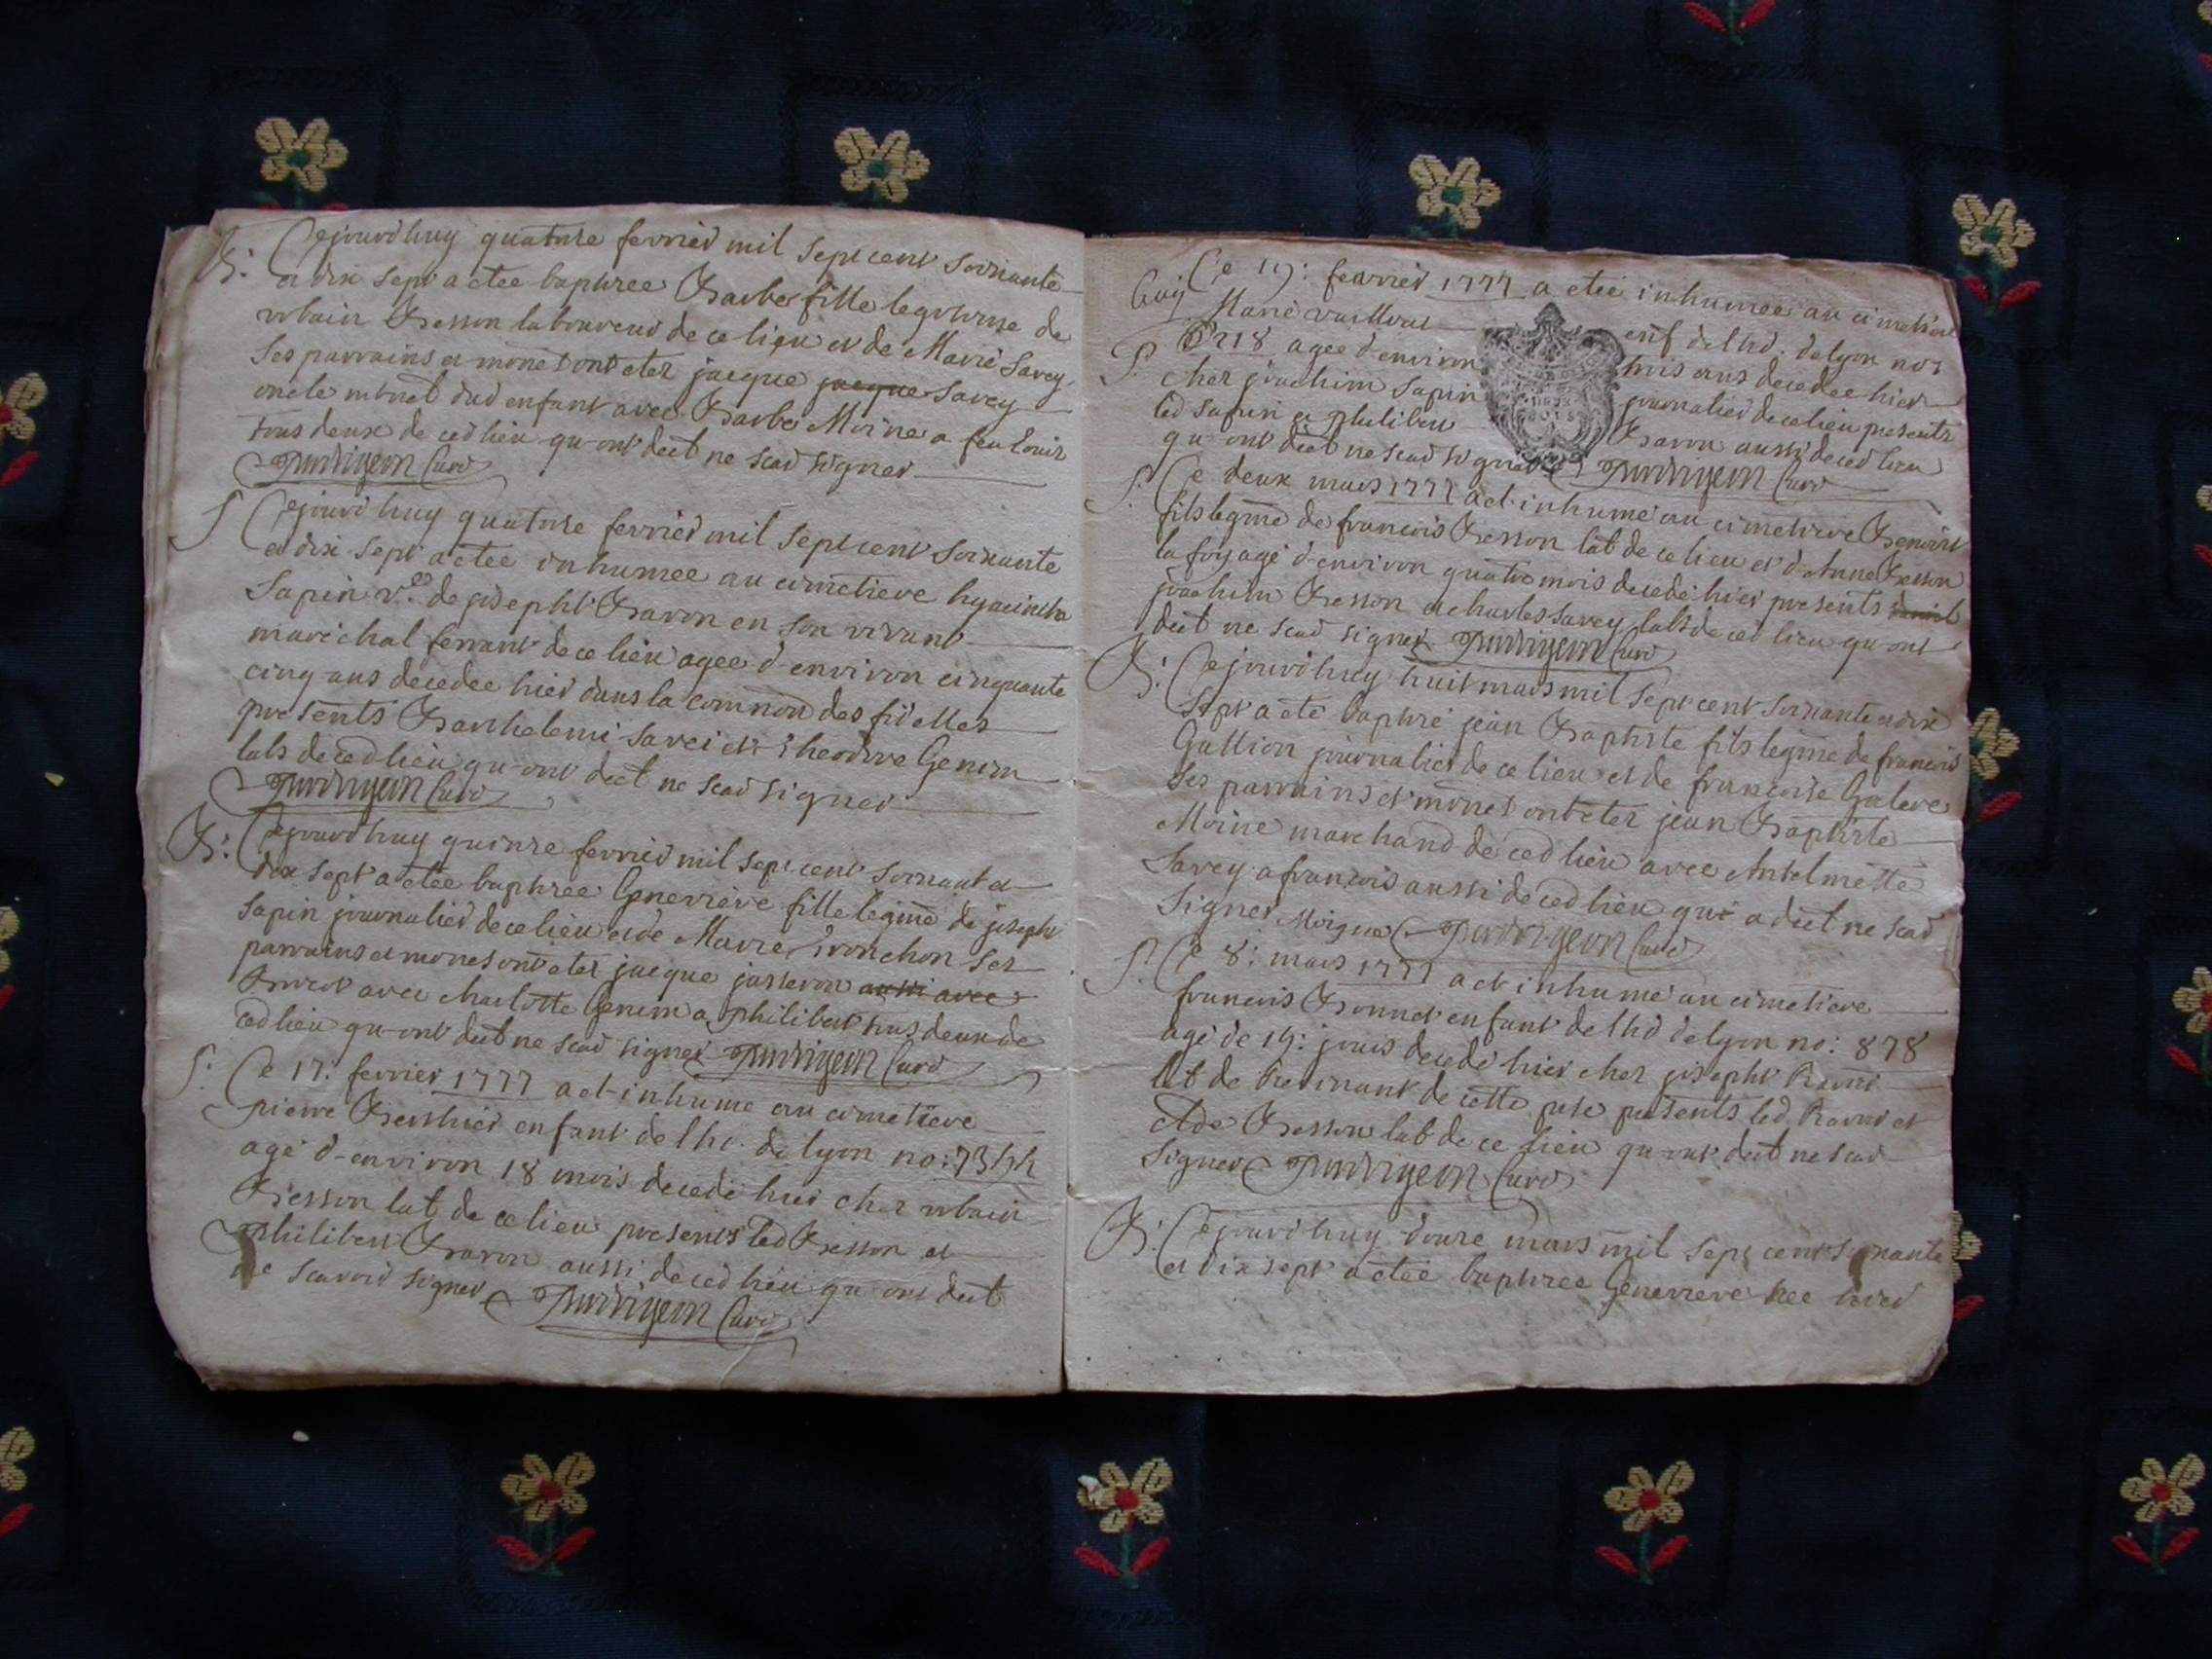 B: Cejourdhuy quatorze fevrier mil sept cent soixante
et dix sept a etee baptizee Barbe fille legitime de
urbain Besson laboureur de ce lieu et de Marie Savey
Ses parrains et mones ont etez jacque jacque Savey
oncle dud enfant avec Barbe Moine a feu Louis
tous deux de ced lieu qu-ont deet ne scav signer
Curé
S Cejourdhuy quatorze fevrier mil sept cent soixante
et dix sept a etee inhumee au cimetiere hyacinthe
Sapin ve de joseph Baron en son vivant
marechal ferrant de ce lieu agee d-environ cinquante
cinq ans decedee hier dans la common des fidelles
presents Barthelemi Savei et Theodore Genin
labs de ced lieu qu-ont deet ne scav signer
Curé
B: Cejourdhuy quinze fevrier mil sept cent soixant et
dix sept a etee baptizee Genevieve fille legime de joseph
Sapin journalier de ce lieu et de Marie Tronchon Ses
parrains et mones ont etez jacque jasseron aussi avec
avec charlotte Genin a philibert tous deux de
ced lieu qu-ont deet ne scav signer Curé
S: Ce 17: fevrier 1777 a et inhume au cimetiere
pierre Berthier enfant de lho. de lyon no: 7344
agé d-environ 18 mois decedé hier chez urbain
Besson lab de ce lieu presents led Besson et
philibert Baron aussi de ced lieu qu-ont deet
ne scavoir signer Curé
Ce 19: feavrier 1777 a etée inhumee au cimetiere
Marie enf de lhd. de lyon no:
S: 8218 agee d-environ trois ans decedee hier
chez joachim Sapin journalier de ce lieu presents
led Sapin et philibert Baron aussi de ced lieu
qu-ont deet ne scav signer Curé
S: Ce deux mars 1777 a et inhumé au cimetiere Benoist
fils legme de francois Besson lab de ce lieu et d-Anne Besson
la foy agé d-environ quatre mois decedé hier presents
joachim Besson et charles Savey labs de ced lieu qu-ont
deet ne scav signer Curé
B: Cejourdhuy huit mars mil sept cent soixante et dix
Sept a eté baptizé jean Baptiste fils legme de francois
Gallion journalier de ce lieu et de francoise Galere
Ses parrains et mones ont etez jean Baptiste
Moine marchand de ced lieu avec Antelmette
Savey a francois aussi de ced lieu qui a deet ne scav
Signer Curé
S: Ce 8: mars 1777 a et inhumé au cimetiere
francois Bonnet enfant de lhd de lyon no: 878
agé de 19: jours decedé hier chez joseph
lab de de cette pse presents led et
Besson lab de ce lieu qu-ont deet ne scav
signer Curé
B: Cejourdhuy douze mars mil sept cent soixante
et dix sept a etée baptizee Genevieve nee hier